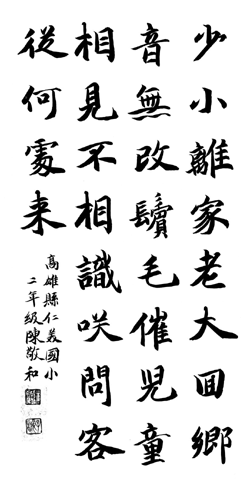 少小離家老大囬鄉
音無改鬢毛催兒童
相見不相識咲問客
從何處来
高雄縣仁美國小
二年級陳敬和